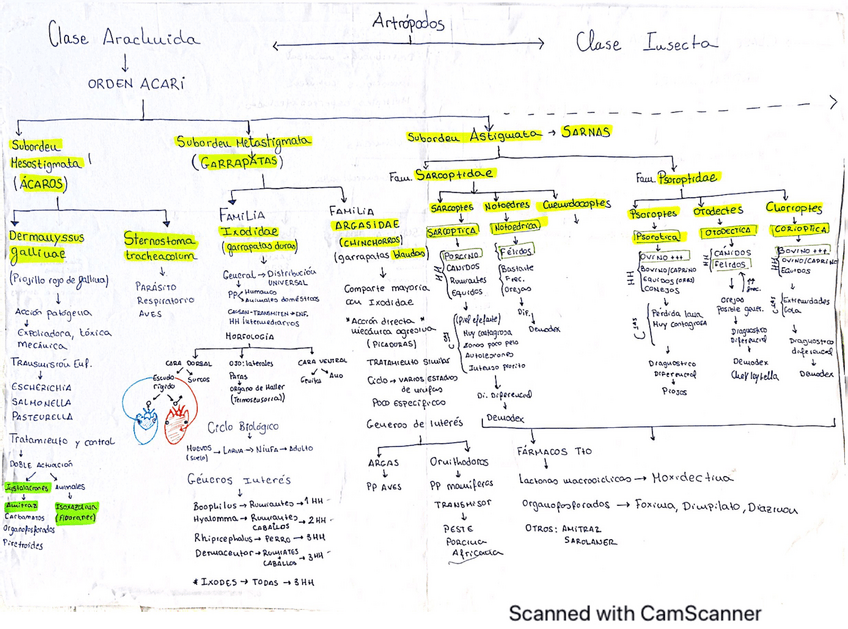 Artrópodos
Clase Arachnida
Clase Insecta
ORDEN ACARI
Suborden
Mesostigmata
(ÁCAROS)
Suborden Metastigmata
(GARRAPATAS)
Suborden Astigmata → SARNAS
Dermanyssus
gallinae
(Piojillo rojo de gallina)
Acción patógena
Expoliadora, tóxica
mecánica
Transmisión Enf.
ESCHERICHIA
SALMONELLA
PASTEURELLA
Tratamiento y control
DOBLE ACTUACIÓN
Instalaciones
Animales
Amitraz
Carbamatos
Organofosforados
Piretroides
Isoxazolina
(Fluoraner)
Sternostoma
tracheacolum
PARÁSITO
Respiratorio
AVES
FAMILIA
Ixodidae
(garrapatas duras)
General → Distribución
UNIVERSAL
PP
Humanos
Animales domésticos
CAUSAN-TRANSMITEN + ENF.
HH intermediarios
MORFOLOGÍA
CARA DORSAL
Escudo
rígido
Surcos
OJO: laterales
Patas
órgano de Haller
(termosensoria)
CARA VENTRAL
Genitra
Ano
Ciclo Biológico
HUEVOS → LARVA → Ninfa → Adulto
(suelo)
Géneros Interés
Boophilus → Rumiantes → 1 HH
Hyalomma → Rumiantes → 2 HH
CABALLOS
Rhipicephalus → PERRO → 3 HH
Dermacentor → RUMIATES → 3 HH
CABALLOS
* IXODES → TODAS → 3 HH
FAMILIA
ARGASIDAE
(CHINCHORROS)
(garrapatas blandas)
Comparte mayoría
con Ixodidae
*Acción directa *
mecánica agresiva
(PICADORAS)
TRATAMIENTO similar
Ciclo → VARIOS ESTADOS
de ninfas
POCO ESPECÍFICO
Géneros de Interés
ARGAS
PP AVES
Ornithodoros
PP mamíferos
TRANSMISOR
PESTE
PORCINA
Africana
Fam. Sarcoptidae
SARCOPTES
SARCOPTICA
HH
PORCINO
CANIDOS
Rumiantes
EQUIDOS
(Piel elefante)
Muy contagiosa
Zonas poco pelo
Autolesiones
Intenso prurito
Di. Diferencial
Demodex
Notoedres
Notoédrica
Félidos
Bastante
Frec.
Orejas
Dif.
Demodex
Cnemidocoptes
Fam. Psoroptidae
Psoroptes
Psorotica
HH
OVINO +++
BOVINO/CAPRINO
EQUIDOS (OREJAS)
CONEJOS
Pérdida lana
Muy contagiosa
Diagnóstico
Diferencial
Piojos
Otodectes
OTODECTICA
HH
CÁNIDOS
FÉLIDOS
Orejas
Posible gener.
Diagnóstico
Diferencial
Demodex
Cheyletiella
Chorioptes
CORIOPTICA
HH
BOVINO +++
OVINO/CAPRINO
Equidos
Extremidades
Cola
Diagnóstico
diferencial
Demodex
FÁRMACOS TTO
Lactonas macrocíclicas → Moxidectina
Organofosforados → Foxima, Dimpilato, Diazinon
OTROS: AMITRAZ
SAROLANER
Scanned with CamScanner